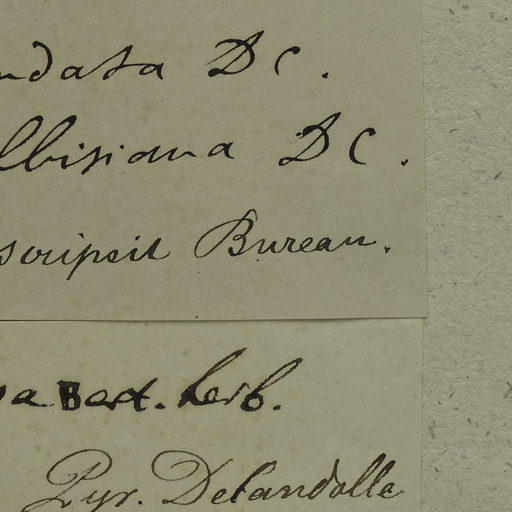 ndata DC.
lbisiana DC.
scripsit Bureau.
a Bert. herb.
Pyr. Delandolle